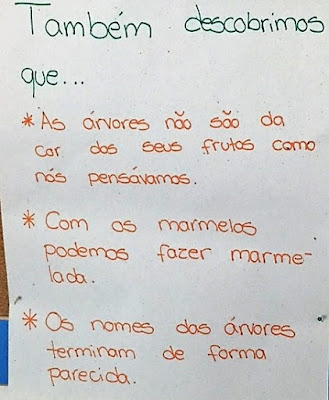 Também descobrimos
que...
* As árvores não são da
cor dos seus frutos como
nós pensávamos.
* Com os marmelos
podemos fazer marme-
lada.
* Os nomes das árvores
terminam de forma
parecida.